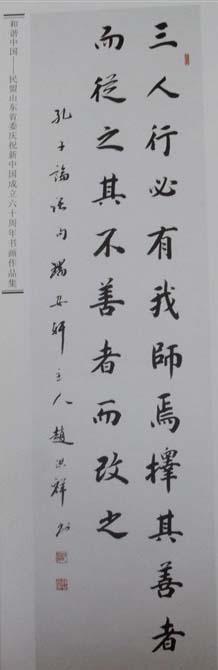 三人行必有我師焉擇其善者
而從之其不善者而改之
孔子論語句 瑞安軒主人趙洪祥書
和谐中国——民盟山东省委庆祝新中国成立六十周年书画作品集